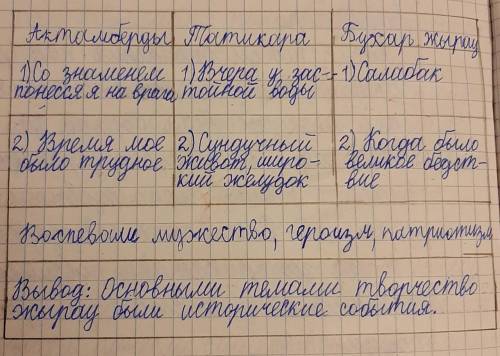 Актамберды Татикара Бухар жырау
1) Со знаменем 1) Вчера у зас- 1) Салабак
понесся я на врага тойной воды
2) Время мое 2) Сундучный 2) Когда было
было трудное живот, широ- великое бедст-
кий желудок вие
Воспевали мужество, героизм, патриотизм
Вывод: Основными темами творчество
жырау были исторические события.